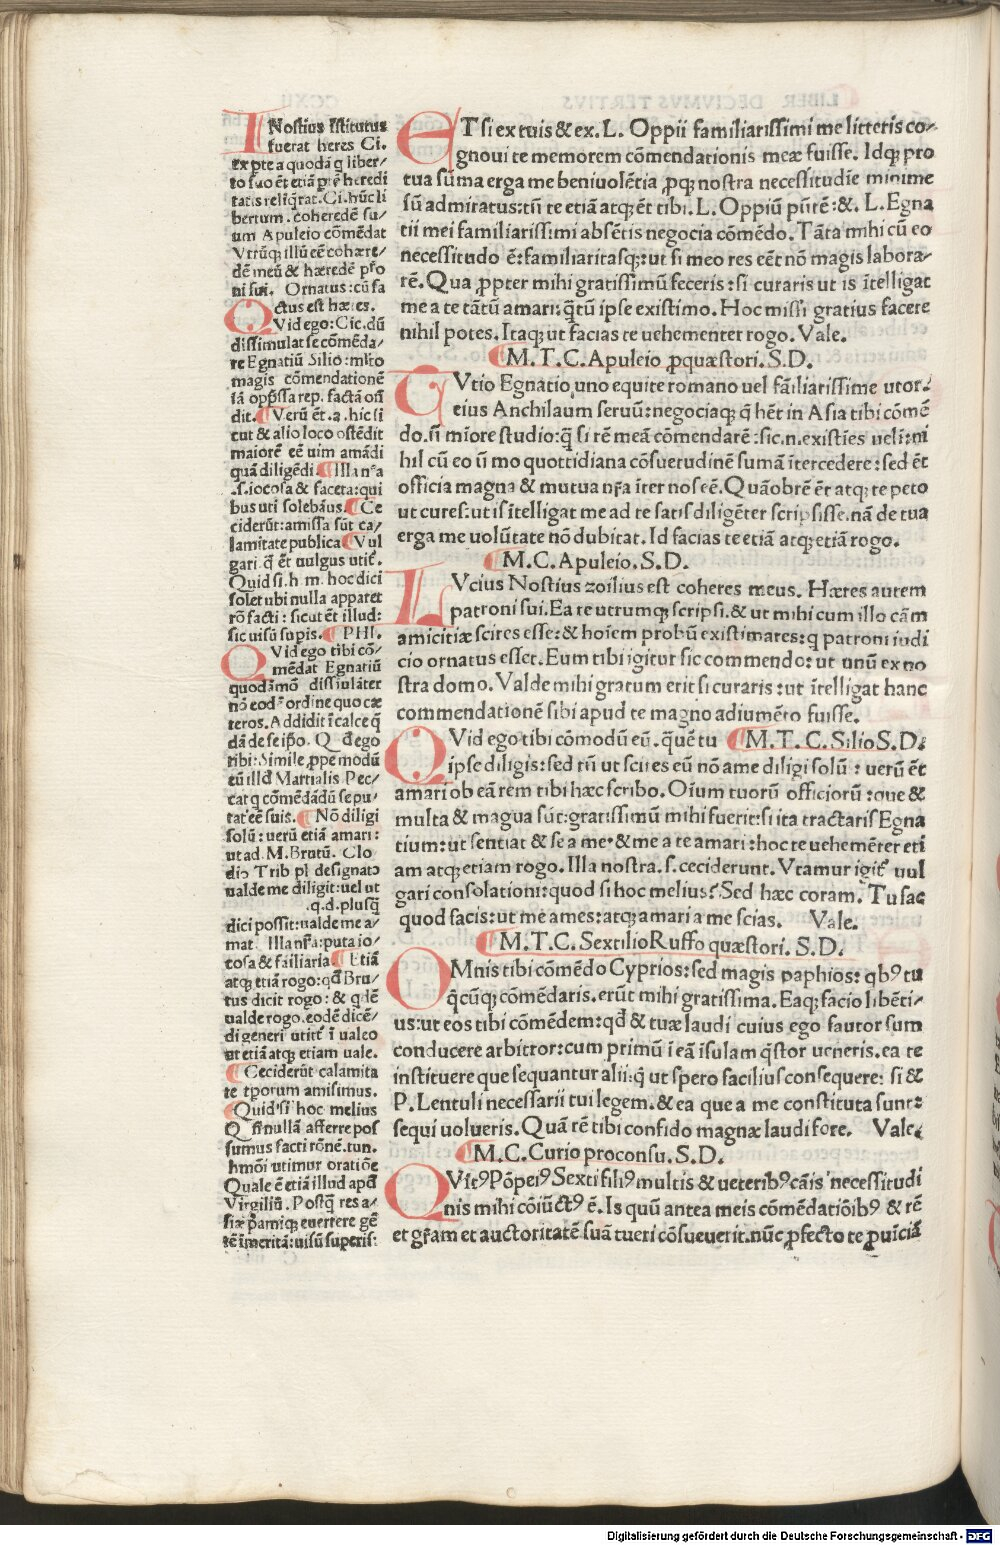 ETsi ex tuis & ex. L. Oppii familiarissimi me litteris co-
gnoui te memorem cōmendationis meæ fuisse. Idq; pro
tua sūma erga me beniuolētia ꝓq; nostra necessitudīe minime
sū admiratus: tñ te etiā atq; ēt tibi. L. Oppiū pn̄tē: &. L. Egna
tii mei familiarissimi absētis negocia cōmēdo. Tāta mihi cū eo
necessitudo ē: familiaritasq;: ut si meo res eēt nō magis labora-
rē. Qua ꝓpter mihi gratissimū feceris: si curaris ut is ītelligat
me a te tātū amari: q̄tū ipse existimo. Hoc mihi gratius facere
nihil potes. Itaq; ut facias te uehementer rogo. Vale.
M. T. C. Apuleio ꝓquæstori. S. D.
GVtio Egnatio uno equite romano uel fāiliarissime utor.
eius Anchilaum seruū: negociaq; q̄ hēt in Asia tibi cōmē
do. nō mīore studio: q̄ si rē meā cōmendarē: sic. n. existīes uelī: ni
hil cū eo ū mo quottidiana cōsuetudinē sumā ītercedere: sed ēt
officia magna & mutua nr̄a īter nos eē. Quāobrē ēt atq; te peto
ut cures: ut is ītelligat me ad te satis diligēter scripsisse. nā de tua
erga me uolūtate nō dubitat. Id facias te etiā atq; etiā rogo.
M. C. Apuleio. S. D.
LVcius Nostius zoilius est coheres meus. Hæres autem
patroni sui. Ea te utrumq; scripsi. & ut mihi cum illo cām
amicitiæ scires esse: & hoīem probū existimares: q patroni iudi
cio ornatus esset. Eum tibi igitur sic commendo: ut unū ex no
stra domo. Valde mihi gratum erit si curaris: ut ītelligat hanc
commendationē sibi apud te magno adiumēto fuisse.
QVid ego tibi cōmodū eū. quē tu M. T. C. Silio S. D.
ipse diligis: sed tñ ut scires eū nō a me diligi solū: uerū ēt
amari ob eā rem tibi hæc scribo. Oīum tuorū officiorū: que &
multa & magna sūt: gratissimū mihi fuerit: si ita tractaris Egna
tium: ut sentiat & se a me & me a te amari: hoc te uehemēter eti
am atq; etiam rogo. Illa nostra. s. ceciderunt. Vtamur igit uul
gari consolationi: quod si hoc melius? Sed hæc coram. Tu fac
quod facis: ut me ames: atq; amari a me scias. Vale.
M. T. C. Sextilio Ruffo quæstori. S. D.
OMnis tibi cōmēdo Cyprios: sed magis paphios: qbꝰ tu
q̄cūq; cōmēdaris. erūt mihi gratissima. Eaq; facio libēti-
us: ut eos tibi cōmēdem: qđ & tuæ laudi cuius ego fautor sum
conducere arbitror: cum primū ī eā īsulam q̄stor ueneris. ea te
instituere que sequantur alii: q̄ ut spero facilius consequere: si &
P. Lentuli necessarii tui legem. & ea que a me constituta sunt:
sequi uolueris. Quā rē tibi confido magnæ laudi fore. Vale.
M. C. Curio proconsu. S. D.
QVītꝰ Pōpeiꝰ Sexti filiꝰ multis & ueteribꝰ cāis necessitudi
nis mihi cōiūctꝰ ē. Is quū antea meis cōmēdatiōibꝰ & rē
et gr̄am et auctoritatē suā tueri cōsueuerit. nūc ꝓfecto te ꝓuīciā
INostius īstitutus
fuerat heres Ci.
ex pte a quodā q liber-
to suo ēt etiā ptē heredi
tatis reliq̄rat. Ci. hūc li
bertum. coheredē su-
um Apuleio cōmēdat
Vtrūq; illū eē cohære-
dē meū & hæredē pr̄o
ni sui. Ornatus: cū fa
ctus est hæres.
QVid ego: Cic. dū
dissimulat se cōmēda-
re Egnatiū Silio: mlto
magis cōmendationē
iā oppressa rep. factā oñ
dit. Verū ēt. a. hic si
cut & alio loco ostēdit
maiorē eē uim amādi
quā diligēdi. Illa nr̄a
.s. iocosa & faceta: qui
bus uti solebāus. Ce
ciderūt: amissa sūt ca-
lamitate publica Vul
gari. q̄ ēt uulgus utit.
Quid si. h. m. hoc dici
solet ubi nulla apparet
rō facti: sicut ēt illud:
sic uisū supis. PHI.
QVid ego tibi cō-
mēdat Egnatiū
quodāmō dissiulāter
nō eodē ordine quo cæ
teros. Addidit ī calce q̄
dā de seipo. Qđ ego
tibi: Simile ꝓpemodū
eū illd Martialis Pec-
cat q cōmēdādū se pu-
tat eē suis. Nō diligi
solū: uerū etiā amari:
ut ad. M. Brutū. Clo
dio Trib pl designato
ualde me diligit: uel ut
.q. d. plusq̄
dici possit: ualde me a-
mat. Illa nr̄a: puta io-
cosa & fāiliaria Etiā
atq; etiā rogo: qđ Bru-
tus dicit rogo: & qdē
ualde rogo. eodē dicē-
di generi utit ī ualeo
ut etiā atq; etiam uale.
Ceciderūt calamita
te tporum amisimus.
Quid si hoc melius
Qñ nullā afferre pos
sumus facti rōnē. tun.
hmōi utimur oratiōe
Quale ē etiā illud apđ
Virgiliū. Postq̄ res a-
siæ pamiq; euertere gē
tē īmeritā: uisū superis:
Digitalisierung gefördert durch die Deutsche Forschungsgemeinschaft - DFG